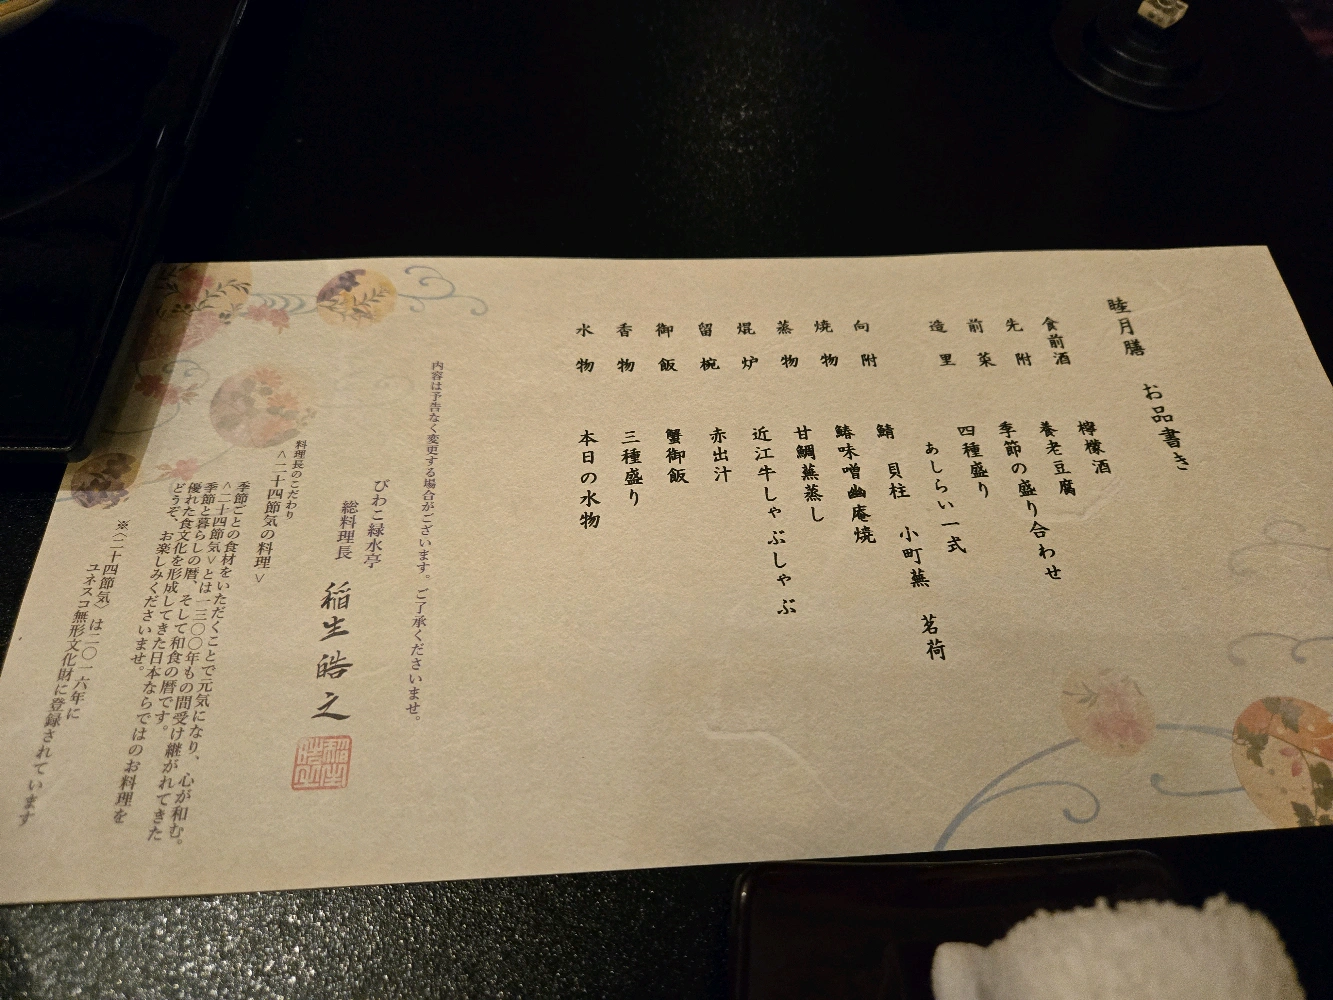 睦月膳 お品書き
食前酒 檸檬酒
先附 養老豆腐
前菜 季節の盛り合わせ
造里 四種盛り
あしらい一式
向附 鯖 貝柱 小町蕪 茗荷
焼物 鰆味噌幽庵焼
蒸物 甘鯛蕪蒸し
焜炉 近江牛しゃぶしゃぶ
留椀 赤出汁
御飯 蟹御飯
香物 三種盛り
水物 本日の水物
内容は予告なく変更する場合がございます。ご了承くださいませ。
びわこ緑水亭
総料理長 稲生皓之
料理長のこだわり
<二十四節気の料理>
季節ごとの食材をいただくことで元気になり、心が和む。
<二十四節気>とは一三〇〇年もの間受け継がれてきた
季節と暮らしの暦、そして和食の暦です。
優れた食文化を形成してきた日本ならではのお料理を
どうぞ、お楽しみくださいませ。
※〈二十四節気〉は二〇一六年に
ユネスコ無形文化財に登録されています